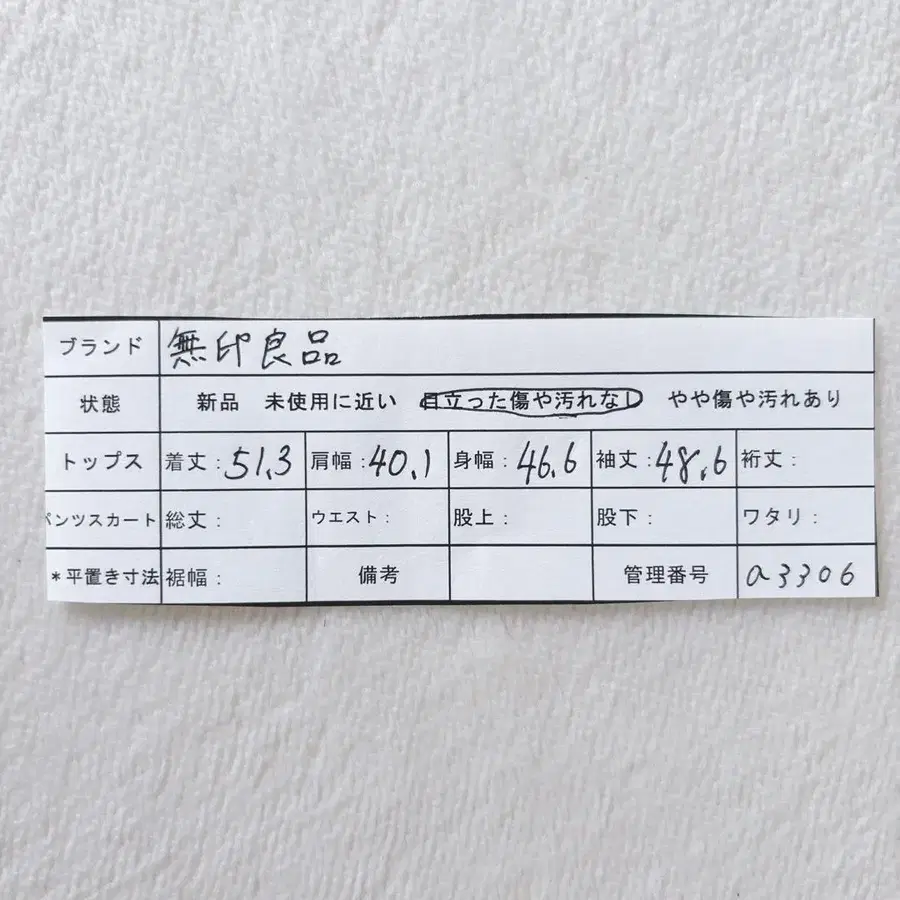 ブランド 無印良品
状態 新品 未使用に近い 目立った傷や汚れなし やや傷や汚れあり
トップス 着丈:51.3 肩幅:40.1 身幅:46.6 袖丈:48.6 裄丈:
パンツスカート 総丈: ウエスト: 股上: 股下: ワタリ:
*平置き寸法 裾幅: 備考 管理番号 a3306